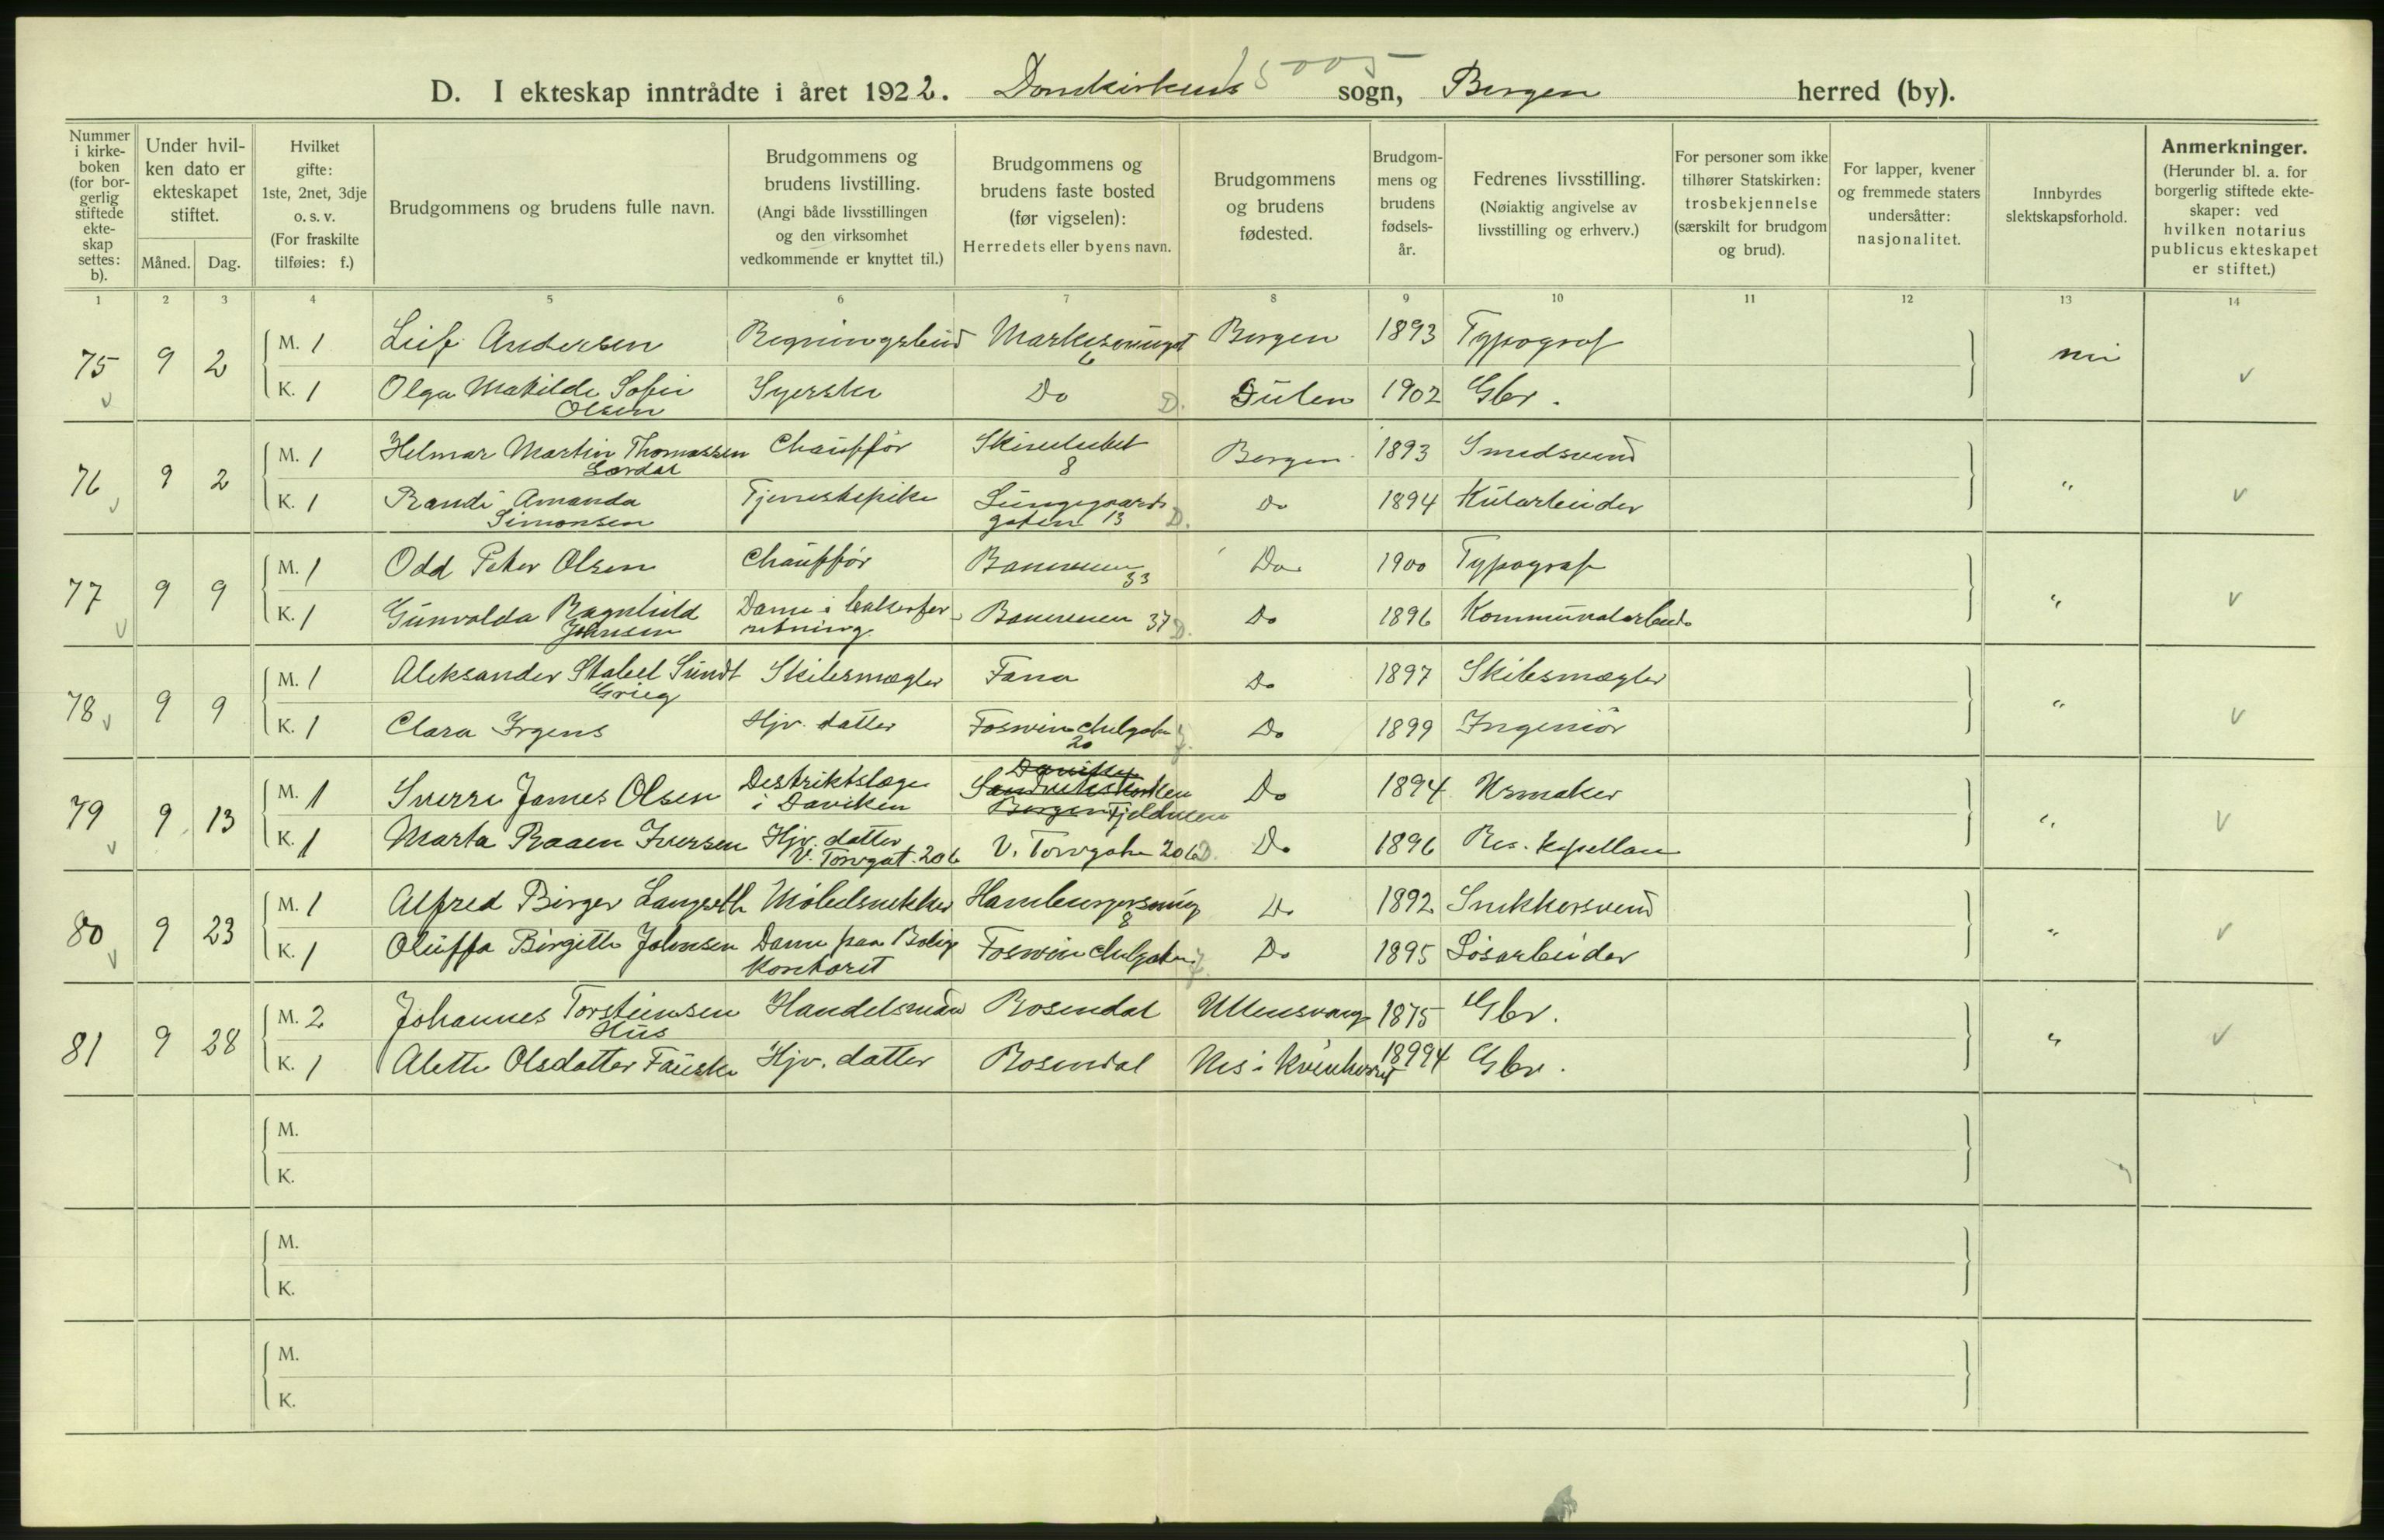 15005
D. I ekteskap inntrådte i året 1922. Domkirkens sogn, Bergen herred (by).
Nummer i kirkeboken (for borgerlig stiftede ekteskap settes: b).
Under hvilken dato er ekteskapet stiftet.
Måned. Dag.
Hvilket gifte: 1ste, 2net, 3dje o. s. v. (For fraskilte tilføies: f.)
Brudgommens og brudens fulle navn.
Brudgommens og brudens livstilling. (Angi både livsstillingen og den virksomhet vedkommende er knyttet til.)
Brudgommens og brudens faste bosted (før vigselen): Herredets eller byens navn.
Brudgommens og brudens fødested.
Brudgommens og brudens fødselsår.
Fedrenes livsstilling. (Nøiaktig angivelse av livsstilling og erhverv.)
For personer som ikke tilhører Statskirken: trosbekjennelse (særskilt for brudgom og brud).
For lapper, kvener og fremmede staters undersåtter: nasjonalitet.
Innbyrdes slektskapsforhold.
Anmerkninger. (Herunder bl. a. for borgerlig stiftede ekteskaper: ved hvilken notarius publicus ekteskapet er stiftet.)
1 2 3 4 5 6 7 8 9 10 11 12 13 14
75 9 2 M. 1 Leif Andersen Regningsbud Markesmuget 6 Bergen 1893 Typograf nei v
K. 1 Olga Matilde Sofie Olsen Syerske Do D. Gulen 1902 Gbr.
76 9 2 M. 1 Helmar Martin Thomassen Lærdal Chauffør 8 Bergen 1893 Smedsvend " v
K. 1 Randi Amanda Simonsen Tjenestepike Lungegaardsgaten 13 D. Do 1894 Kularbeider
77 9 9 M. 1 Odd Peter Olsen Chauffør 33 Do 1900 Typograf " v
K. 1 Gunvolda Ragnhild Johnsen Dame i 37 D. Do 1896 Kommunalarbeid.
78 9 9 M. 1 Aleksander Stabel Sundt Grieg Skibsmægler Fana Do 1897 Skibsmægler " v
K. 1 Clara Irgens Hjv. datter Foswinckelgaten 20 J. Do 1899 Ingeniør
79 9 13 M. 1 Sverre James Olsen Destriktslæge i Daviken Bergen Fjeldveien Do 1894 Urmaker " v
K. 1 Marta Raaen Iversen Hjv. datter V. Torvgat. 20b V. Torvgate 20b D. Do 1896 Res. kapellan
80 9 23 M. 1 Alfred Birger Langseth Møbelsnekker Hamburgersmug 8 Do 1892 Snekkersvend " v
K. 1 Oluffa Birgitte Johnsen Dame paa Boligkontoret Foswinckelgaten J. Do 1895 Løsarbeider
81 9 28 M. 2 Johannes Torsteinsen Hus Handelsmand Rosendal Ullensvang 1875 Gbr. " v
K. 1 Alette Olsdatter Fauske Hjv. datter Rosendal Nes i Kvinherred 18994 Gbr.
M.
K.
M.
K.
M.
K.